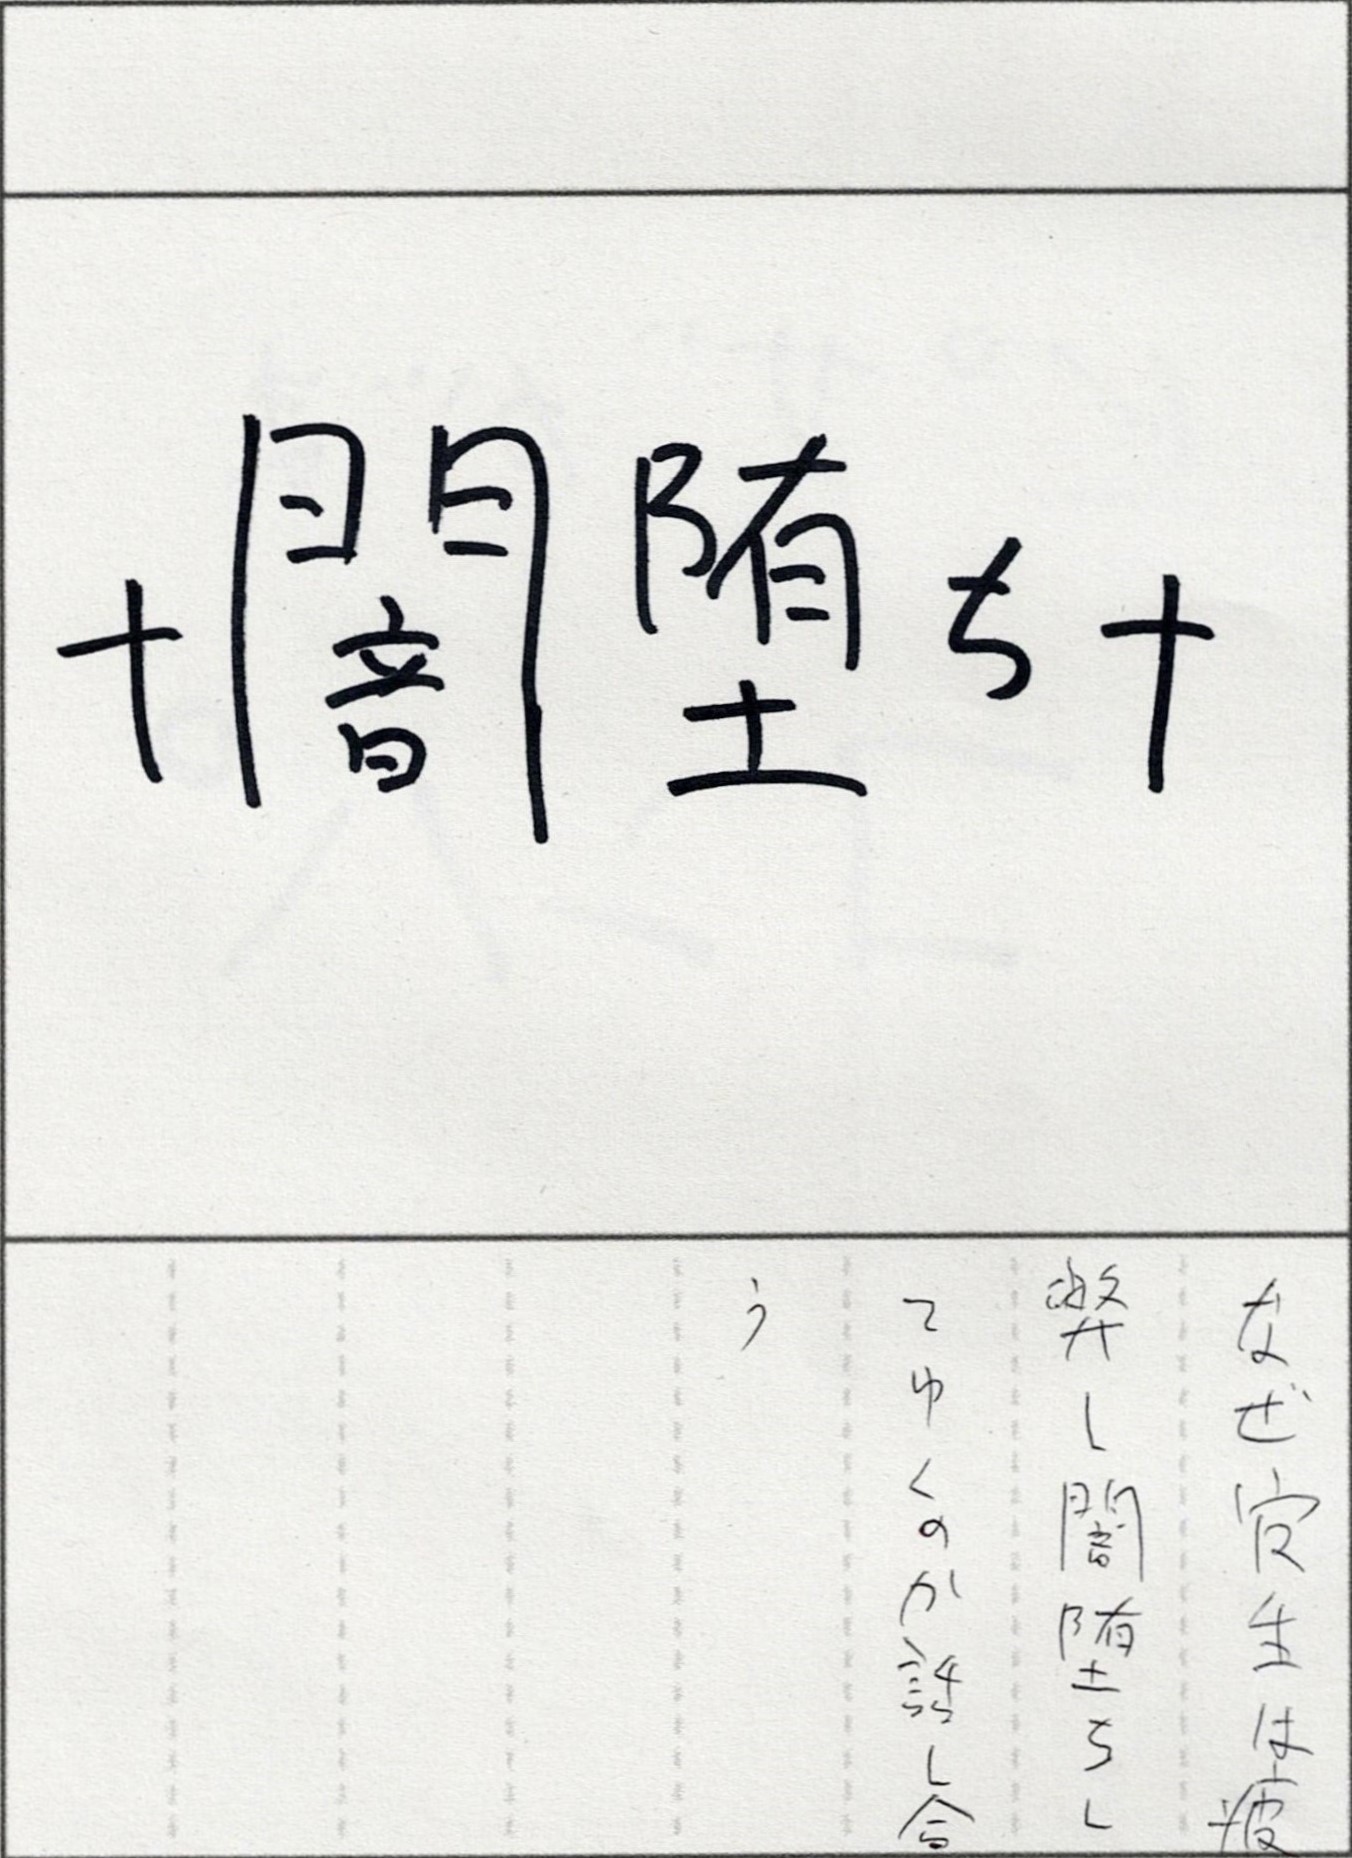 †闇堕ち†
なぜ官生は疲
弊し闇堕ちし
てゆくのか話し合
う